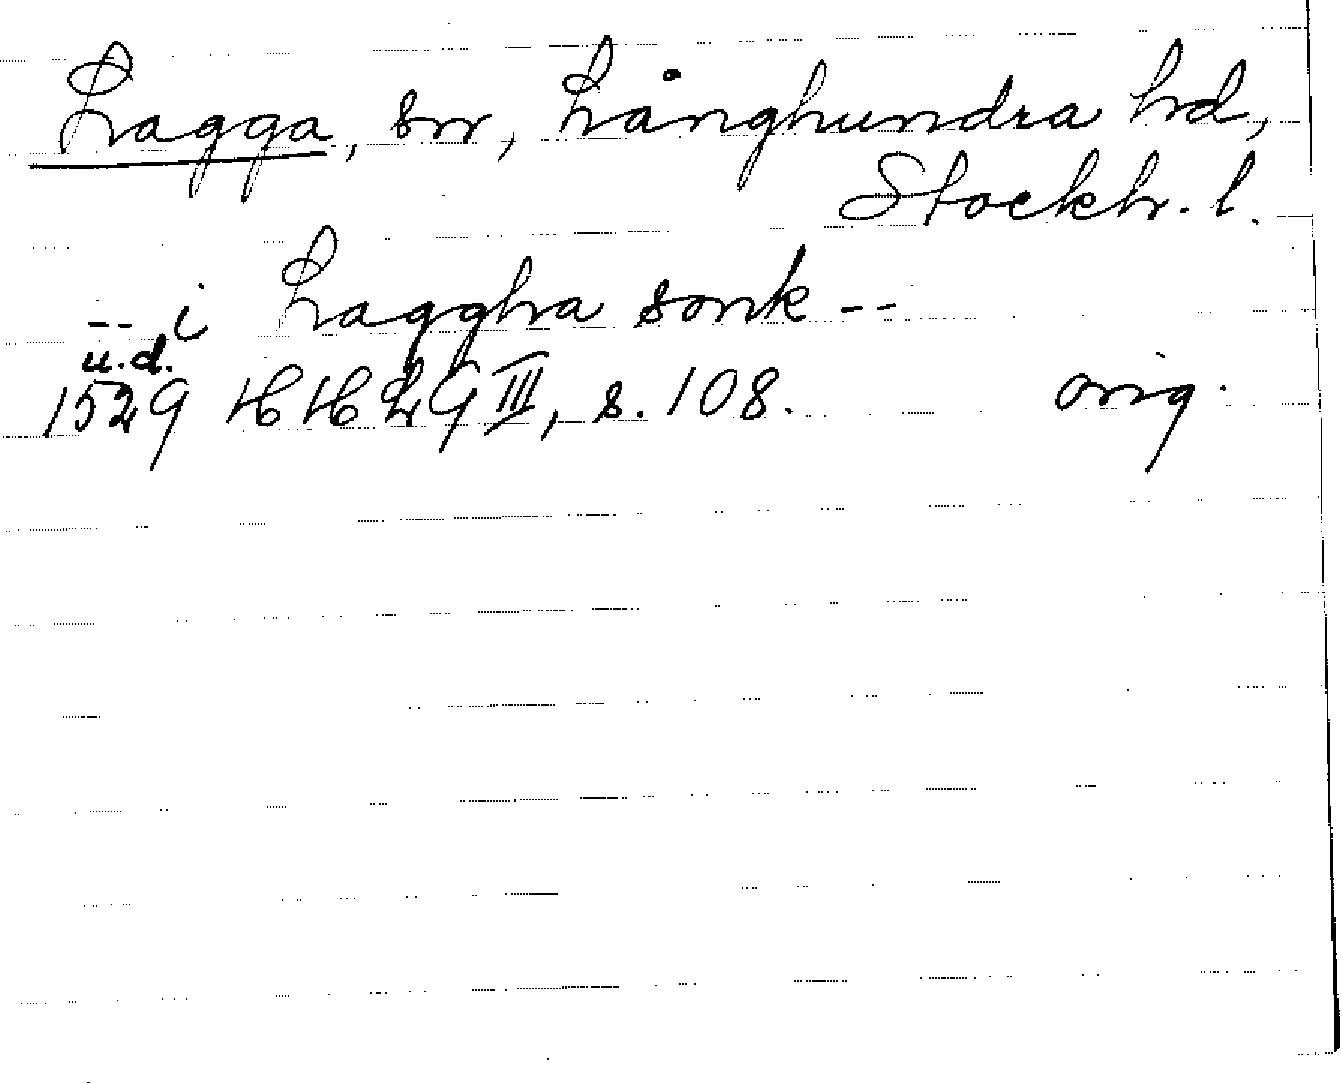 Lagga, sn, Långhundra hd,
Stockh. l.
-- i Laggha sonk --
u.d.
1529 HHLG III, s. 108. orig.